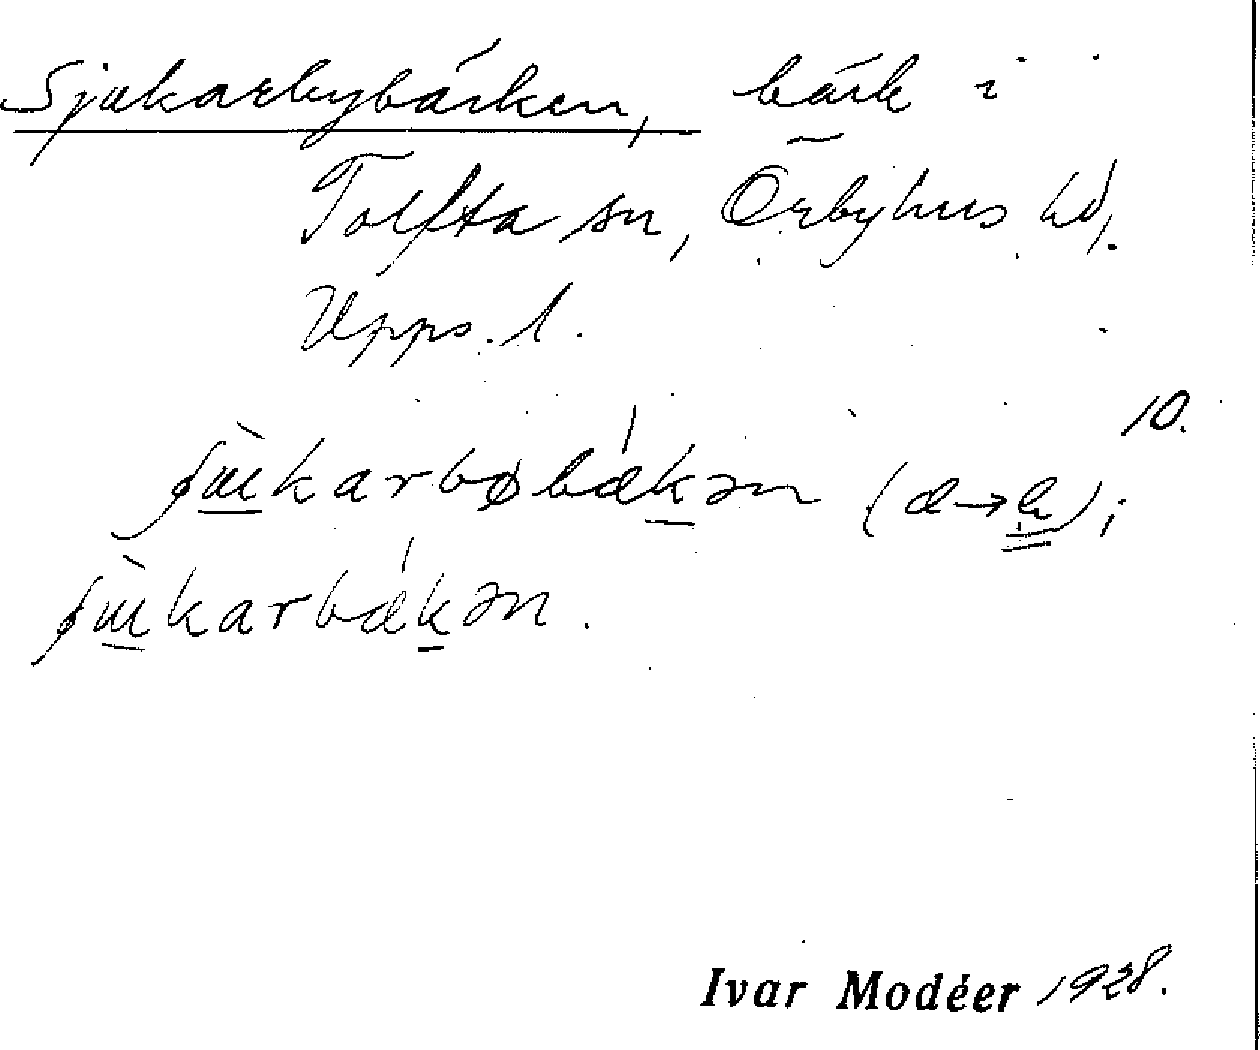 Sjukarbybäcken, bäck i
Tolfta sn, Örbyhus hd,
Upps. l.
10.
ʃɯ̀karbøbǽkən (æ→a);
ʃɯ̀karbǽkən.
Ivar Modéer 1928.